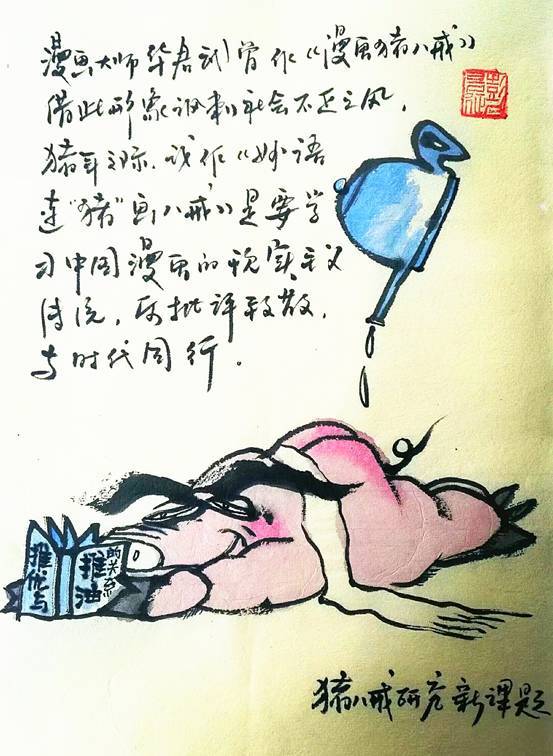 漫画大师华君武曾作《漫画猪八戒》
借此形象讽刺社会不正之风，
猪年之际，我作《妙语
连“猪”画八戒》是要学
习中国漫画的现实主义
传统，
与时代同行。
推优与
推油
的关系
猪八戒研究新课题